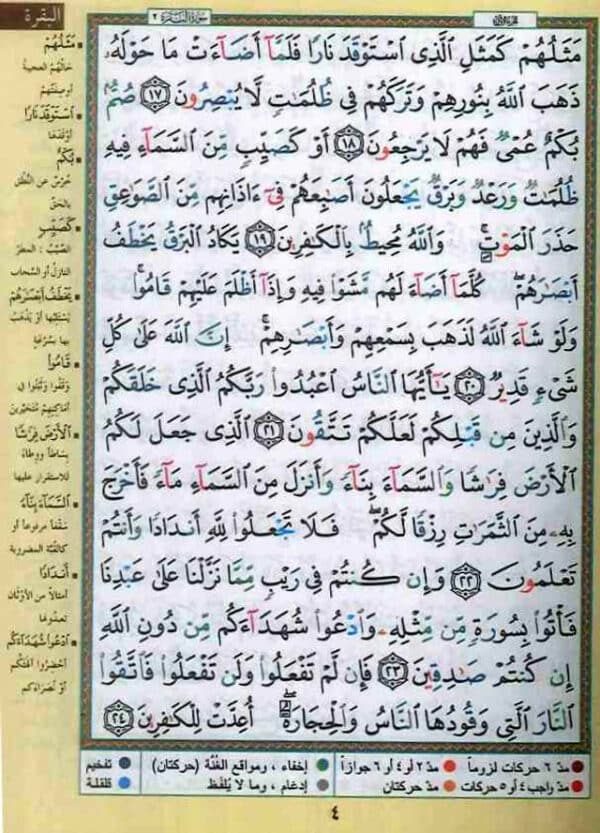 البقرة
سورة البقرة ٢
مَثَلُهُمْ كَمَثَلِ ٱلَّذِى ٱسْتَوْقَدَ نَارًا فَلَمَّآ أَضَآءَتْ مَا حَوْلَهُۥ
ذَهَبَ ٱللَّهُ بِنُورِهِمْ وَتَرَكَهُمْ فِى ظُلُمَٰتٍ لَّا يُبْصِرُونَ ١٧ صُمٌّۢ
بُكْمٌ عُمْىٌ فَهُمْ لَا يَرْجِعُونَ ١٨ أَوْ كَصَيِّبٍ مِّنَ ٱلسَّمَآءِ فِيهِ
ظُلُمَٰتٌ وَرَعْدٌ وَبَرْقٌ يَجْعَلُونَ أَصَٰبِعَهُمْ فِىٓ ءَاذَانِهِم مِّنَ ٱلصَّوَٰعِقِ
حَذَرَ ٱلْمَوْتِ ۚ وَٱللَّهُ مُحِيطٌۢ بِٱلْكَٰفِرِينَ ١٩ يَكَادُ ٱلْبَرْقُ يَخْطَفُ
أَبْصَٰرَهُمْ ۖ كُلَّمَآ أَضَآءَ لَهُم مَّشَوْا۟ فِيهِ وَإِذَآ أَظْلَمَ عَلَيْهِمْ قَامُوا۟ ۚ
وَلَوْ شَآءَ ٱللَّهُ لَذَهَبَ بِسَمْعِهِمْ وَأَبْصَٰرِهِمْ ۚ إِنَّ ٱللَّهَ عَلَىٰ كُلِّ
شَىْءٍ قَدِيرٌ ٢٠ يَٰٓأَيُّهَا ٱلنَّاسُ ٱعْبُدُوا۟ رَبَّكُمُ ٱلَّذِى خَلَقَكُمْ
وَٱلَّذِينَ مِن قَبْلِكُمْ لَعَلَّكُمْ تَتَّقُونَ ٢١ ٱلَّذِى جَعَلَ لَكُمُ
ٱلْأَرْضَ فِرَٰشًا وَٱلسَّمَآءَ بِنَآءً وَأَنزَلَ مِنَ ٱلسَّمَآءِ مَآءً فَأَخْرَجَ
بِهِۦ مِنَ ٱلثَّمَرَٰتِ رِزْقًا لَّكُمْ ۖ فَلَا تَجْعَلُوا۟ لِلَّهِ أَندَادًا وَأَنتُمْ
تَعْلَمُونَ ٢٢ وَإِن كُنتُمْ فِى رَيْبٍ مِّمَّا نَزَّلْنَا عَلَىٰ عَبْدِنَا
فَأْتُوا۟ بِسُورَةٍ مِّن مِّثْلِهِۦ وَٱدْعُوا۟ شُهَدَآءَكُم مِّن دُونِ ٱللَّهِ
إِن كُنتُمْ صَٰدِقِينَ ٢٣ فَإِن لَّمْ تَفْعَلُوا۟ وَلَن تَفْعَلُوا۟ فَٱتَّقُوا۟
ٱلنَّارَ ٱلَّتِى وَقُودُهَا ٱلنَّاسُ وَٱلْحِجَارَةُ ۖ أُعِدَّتْ لِلْكَٰفِرِينَ ٢٤
مَثَلُهُمْ
حالُهُمْ العجيبة
أو صِفَتُهُمْ
ٱسْتَوْقَدَ نَارًا
أوْقَدَها
بُكْمٌ
خُرْسٌ عن النُّطْقِ
بالحَقّ
كَصَيِّبٍ
الصَّيِّبُ : المطرُ
النازلُ أو السَّحاب
يَخْطَفُ أَبْصَٰرَهُمْ
يَسْتَلِبُها أو يَذْهَبُ
بها بسُرْعَةٍ
قَامُوا۟
وَقَفُوا وَثَبَتُوا في
أماكِنِهِمْ مُتَحَيِّرِينَ
ٱلْأَرْضَ فِرَٰشًا
بِسَاطاً وَوِطَاءً
للاستقرار عليها
ٱلسَّمَآءَ بِنَآءً
سَقْفاً مرفوعاً أو
كالقُبَّة المضروبة
أَندَادًا
أمثالاً من الأوثان
تعبدُونها
ٱدْعُوا۟ شُهَدَآءَكُم
أحْضِرُوا آلهتَكُم
أوْ نُصَرَاءَكم
مدّ ٦ حركات لزوماً
مدّ ٢ أو ٤ أو ٦ جوازاً
إخفاء ، ومواقع الغُنَّة (حركتان)
تفخيم
مدّ واجب ٤ أو ٥ حركات
مدّ حركتان
إدغام ، وما لا يُلفَظ
قلقلة
٤